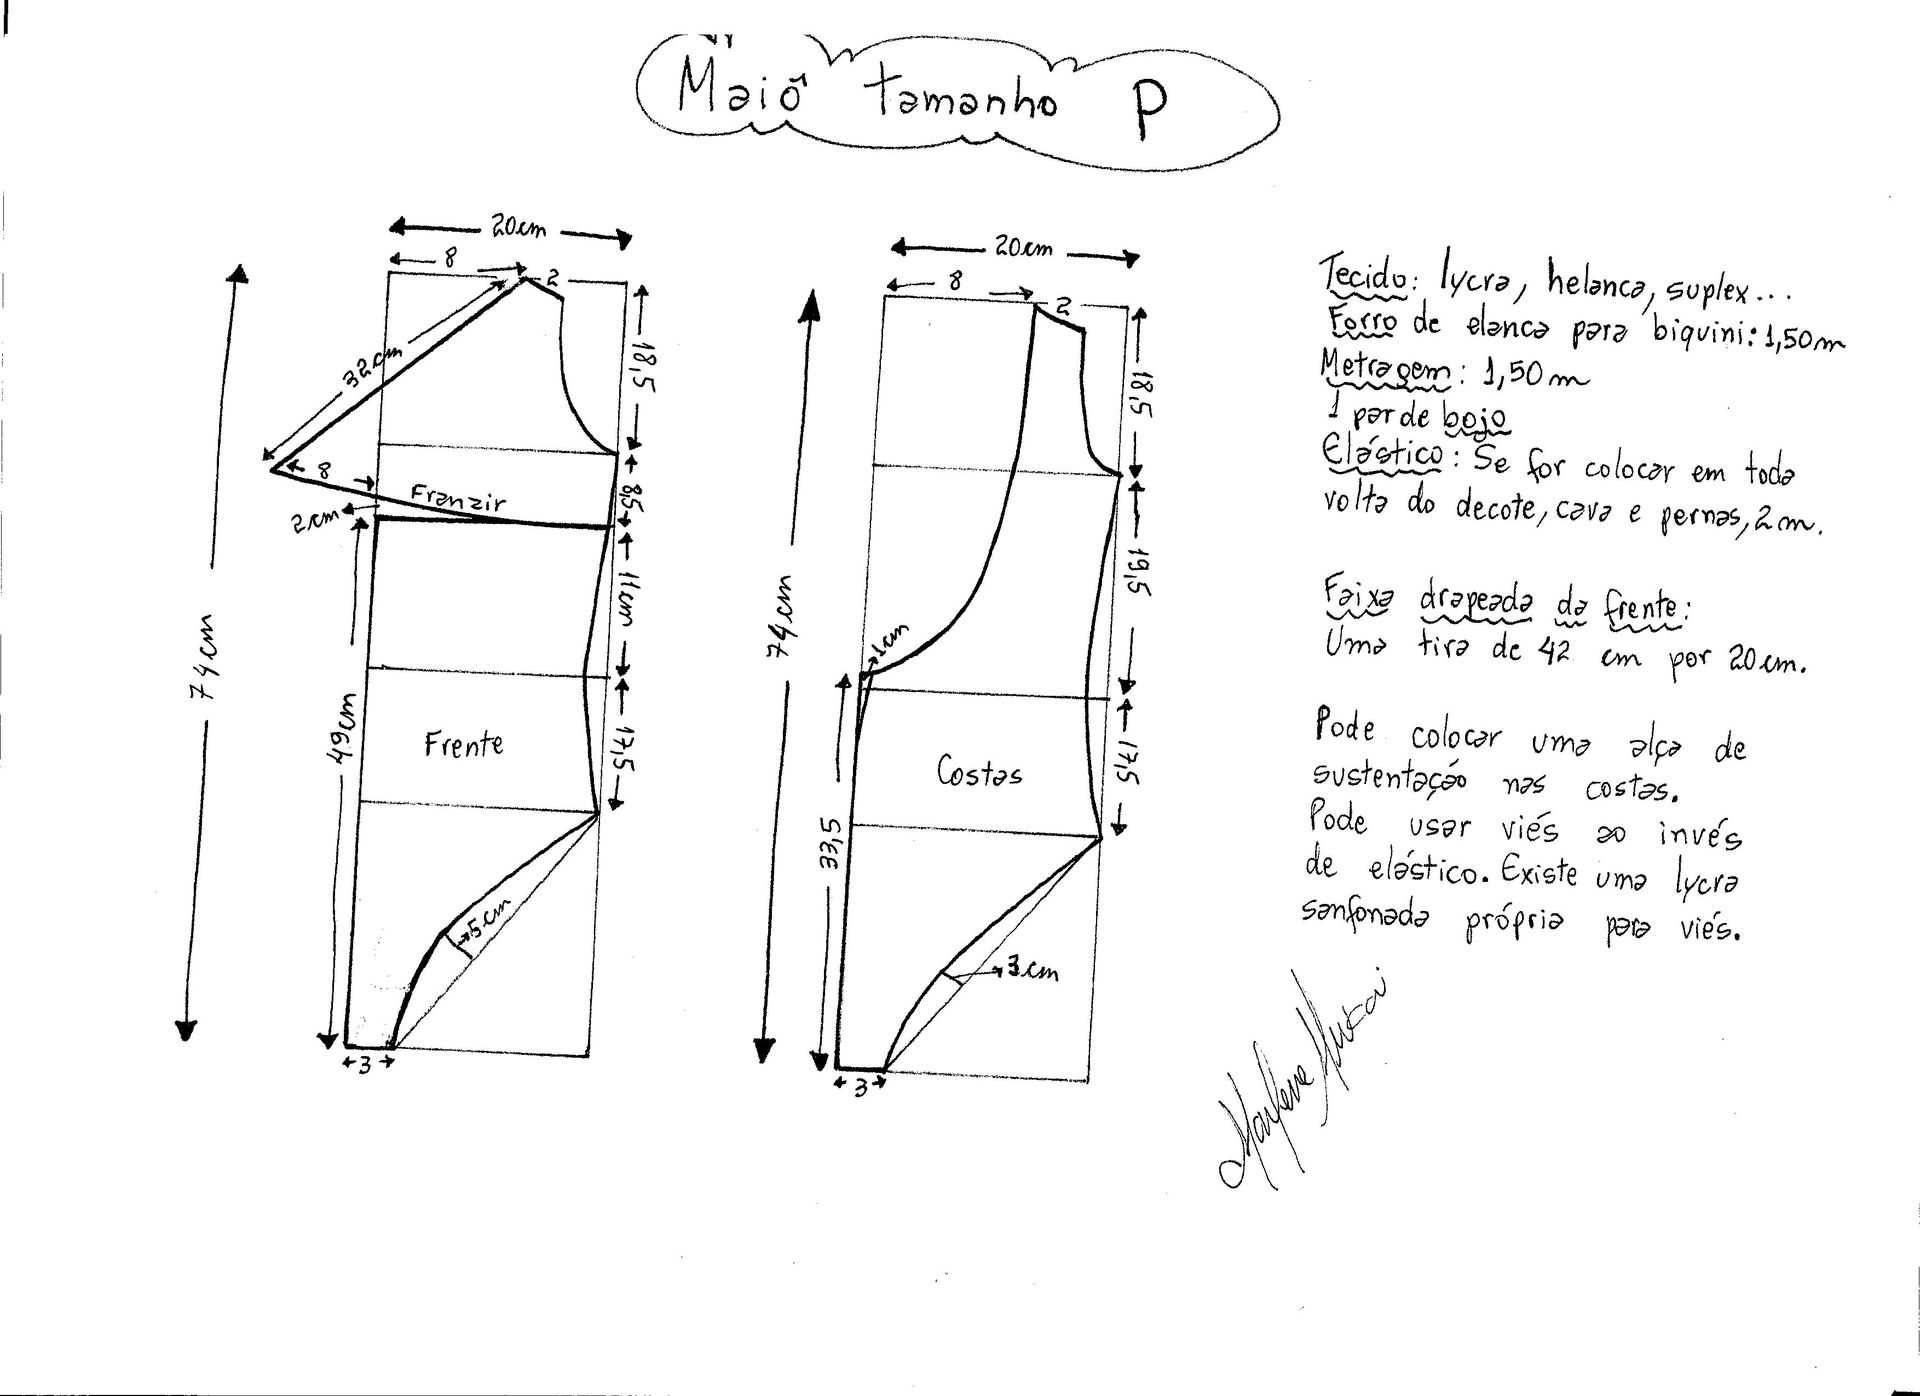 Maiô tamanho P
20cm
8
2
32cm
18,5
8
Franzir
8,5
2cm
11cm
74cm
49cm
Frente
17,5
5cm
3
20cm
8
2
18,5
74cm
19,5
1cm
Costas
17,5
33,5
3cm
3
Tecido: lycra, helanca, suplex...
Forro de elanca para biquini: 1,50m
Metragem: 1,50m
1 par de bojo
Elástico: Se for colocar em toda
volta do decote, cava e pernas, 2m.
Faixa drapeada da frente:
Uma tira de 42 cm por 20cm.
Pode colocar uma alça de
sustentação nas costas.
Pode usar viés ao invés
de elástico. Existe uma lycra
sanfonada própria para viés.
Marlene Mukai